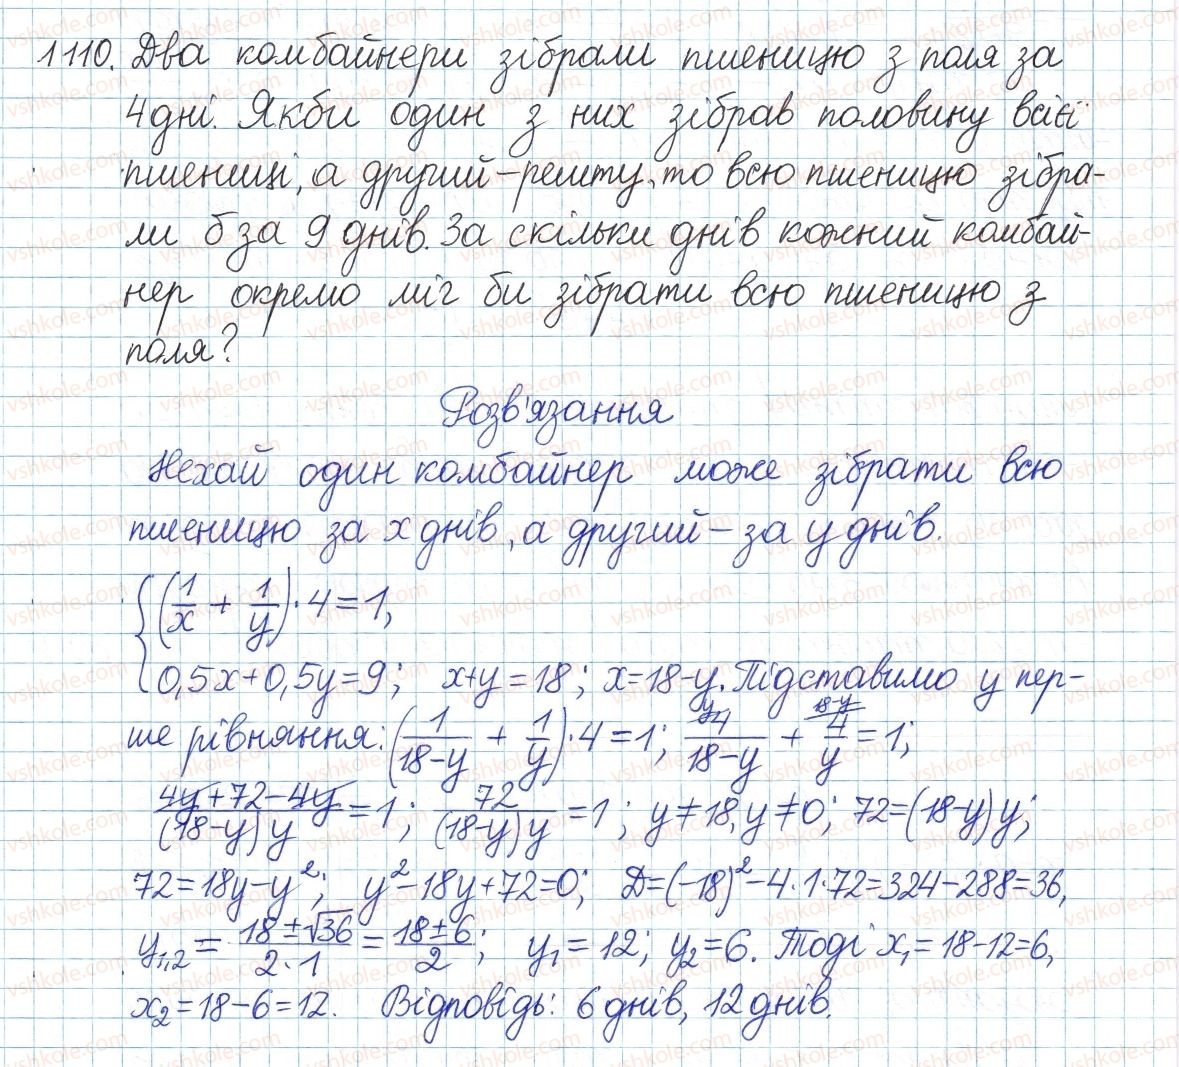 1110. Два комбайнери зібрали пшеницю з поля за
4 дні. Якби один з них зібрав половину всієї
пшениці, а другий – решту, то всю пшеницю зібра-
ли б за 9 днів. За скільки днів кожний комбай-
нер окремо міг би зібрати всю пшеницю з
поля?
Розв'язання
Нехай один комбайнер може зібрати всю
пшеницю за x днів, а другий – за y днів.
{ (1/x + 1/y) · 4 = 1,
0,5x + 0,5y = 9; x + y = 18; x = 18 - y. Підставимо у пер-
ше рівняння: (1/(18-y) + 1/y) · 4 = 1; 4/(18-y) + 4/y = 1;
(4y + 72 - 4y)/((18-y)y) = 1; 72/((18-y)y) = 1; y ≠ 18, y ≠ 0; 72 = (18-y)y;
72 = 18y - y²; y² - 18y + 72 = 0; D = (-18)² - 4·1·72 = 324 - 288 = 36,
y₁,₂ = (18 ± √36)/(2·1) = (18 ± 6)/2; y₁ = 12; y₂ = 6. Тоді x₁ = 18 - 12 = 6,
x₂ = 18 - 6 = 12. Відповідь: 6 днів, 12 днів.